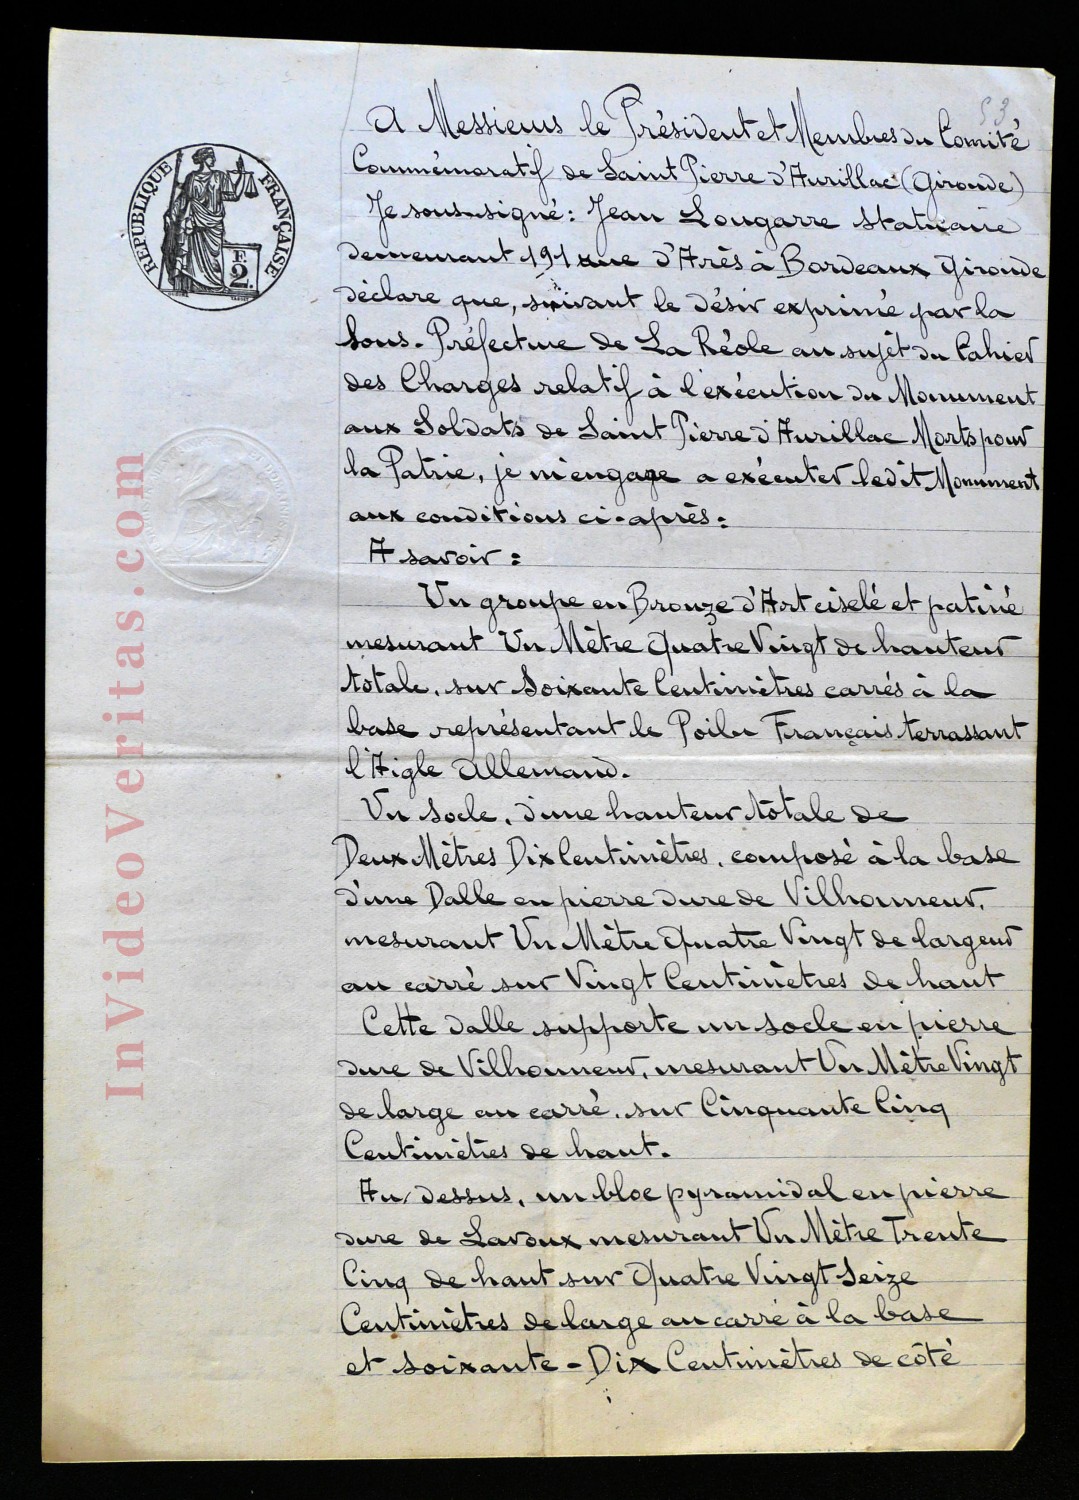 53
A Messieurs le Président et Membres du Comité
Commémoratif de Saint Pierre d'Aurillac (Gironde)
Je sous-signé : Jean Lougarre Statuaire
demeurant 191 rue d'Arès à Bordeaux Gironde
déclare que, suivant le désir exprimé par la
Sous-Préfecture de La Réole au sujet du Cahier
des Charges relatif à l'exécution du Monument
aux Soldats de Saint Pierre d'Aurillac Morts pour
la Patrie, je m'engage a exécuter ledit Monument
aux conditions ci-après :
A savoir :
Un groupe en Bronze d'Art ciselé et patiné
mesurant Un Mètre Quatre Vingt de hauteur
totale, sur Soixante Centimètres carrés à la
base représentant le Poilu Français terrassant
l'Aigle Allemand.
Un Socle, d'une hauteur totale de
Deux Mètres Dix Centimètres, composé à la base
d'une Dalle en pierre dure de Vilhonneur,
mesurant Un Mètre Quatre Vingt de largeur
au carré sur Vingt Centimètres de haut
Cette dalle supporte un socle en pierre
dure de Vilhonneur, mesurant Un Mètre Vingt
de large au carré, sur Cinquante Cinq
Centimètres de haut.
Au dessus, un bloc pyramidal en pierre
dure de Lavoux mesurant Un Mètre Trente
Cinq de haut sur Quatre Vingt Seize
Centimètres de large au carré à la base
et soixante-Dix Centimètres de côté
RÉPUBLIQUE FRANÇAISE
F.
2.
InVideoVeritas.com